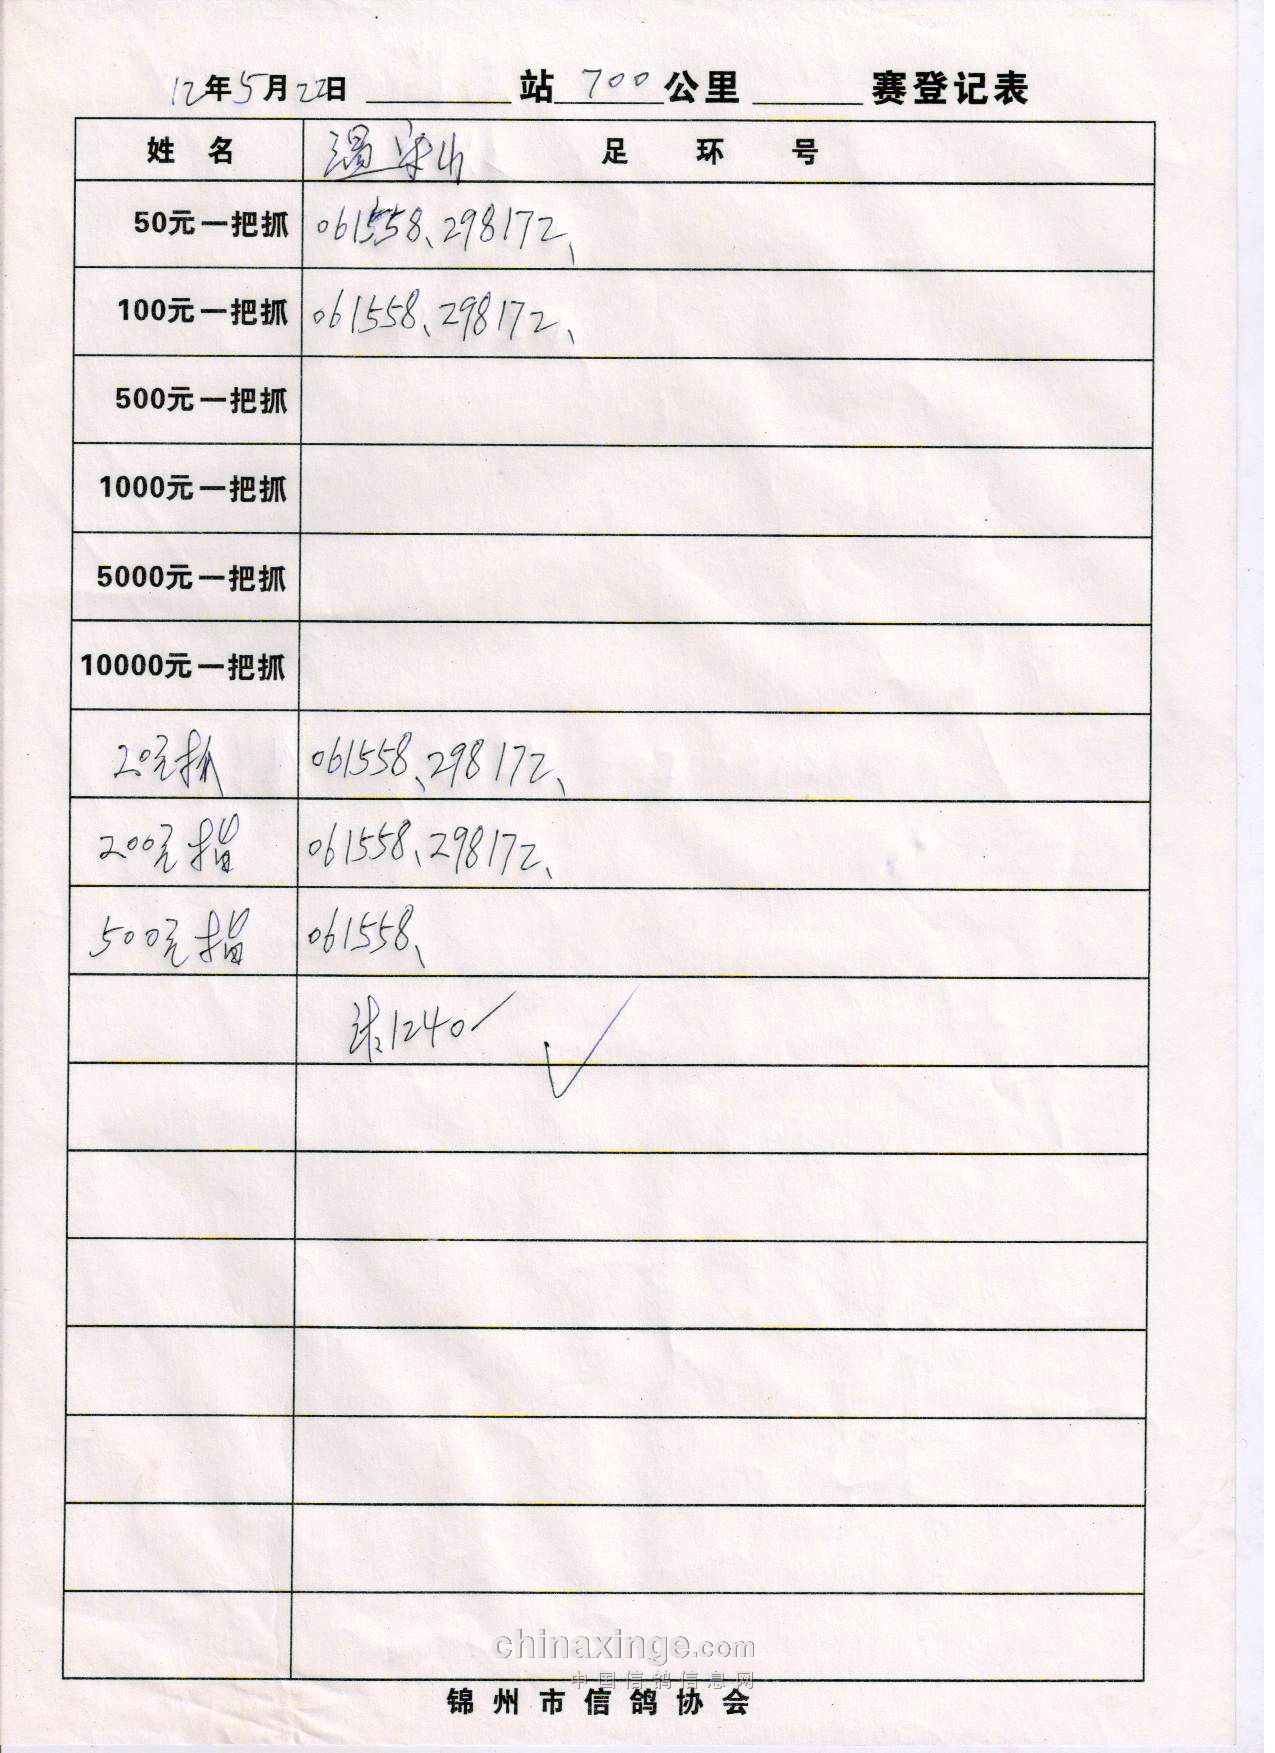 12年5月22日 站 700 公里 赛登记表
姓 名 温 山 足 环 号
50元一把抓 061558、298172、
100元一把抓 061558、298172、
500元一把抓
1000元一把抓
5000元一把抓
10000元一把抓
20元抓 061558、298172、
200元指 061558、298172、
500元指 061558、
1240
chinaxinge.com
中国信鸽信息网
锦州市信鸽协会